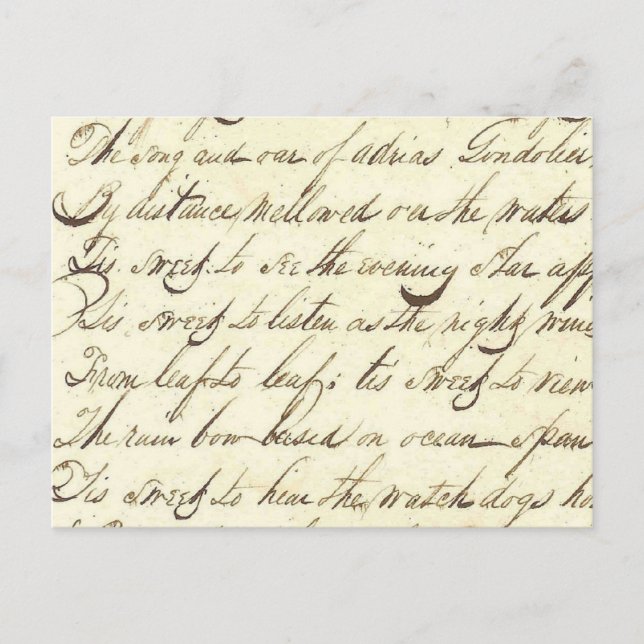 The song and oar of adrias Gondolier,
By distance mellowed o'er the waters
Tis sweet to see the evening star app
Tis sweet to listen as the night wind
From leaf to leaf; tis sweet to view
The rain bow based on ocean span
Tis sweet to hear the watch dogs ho